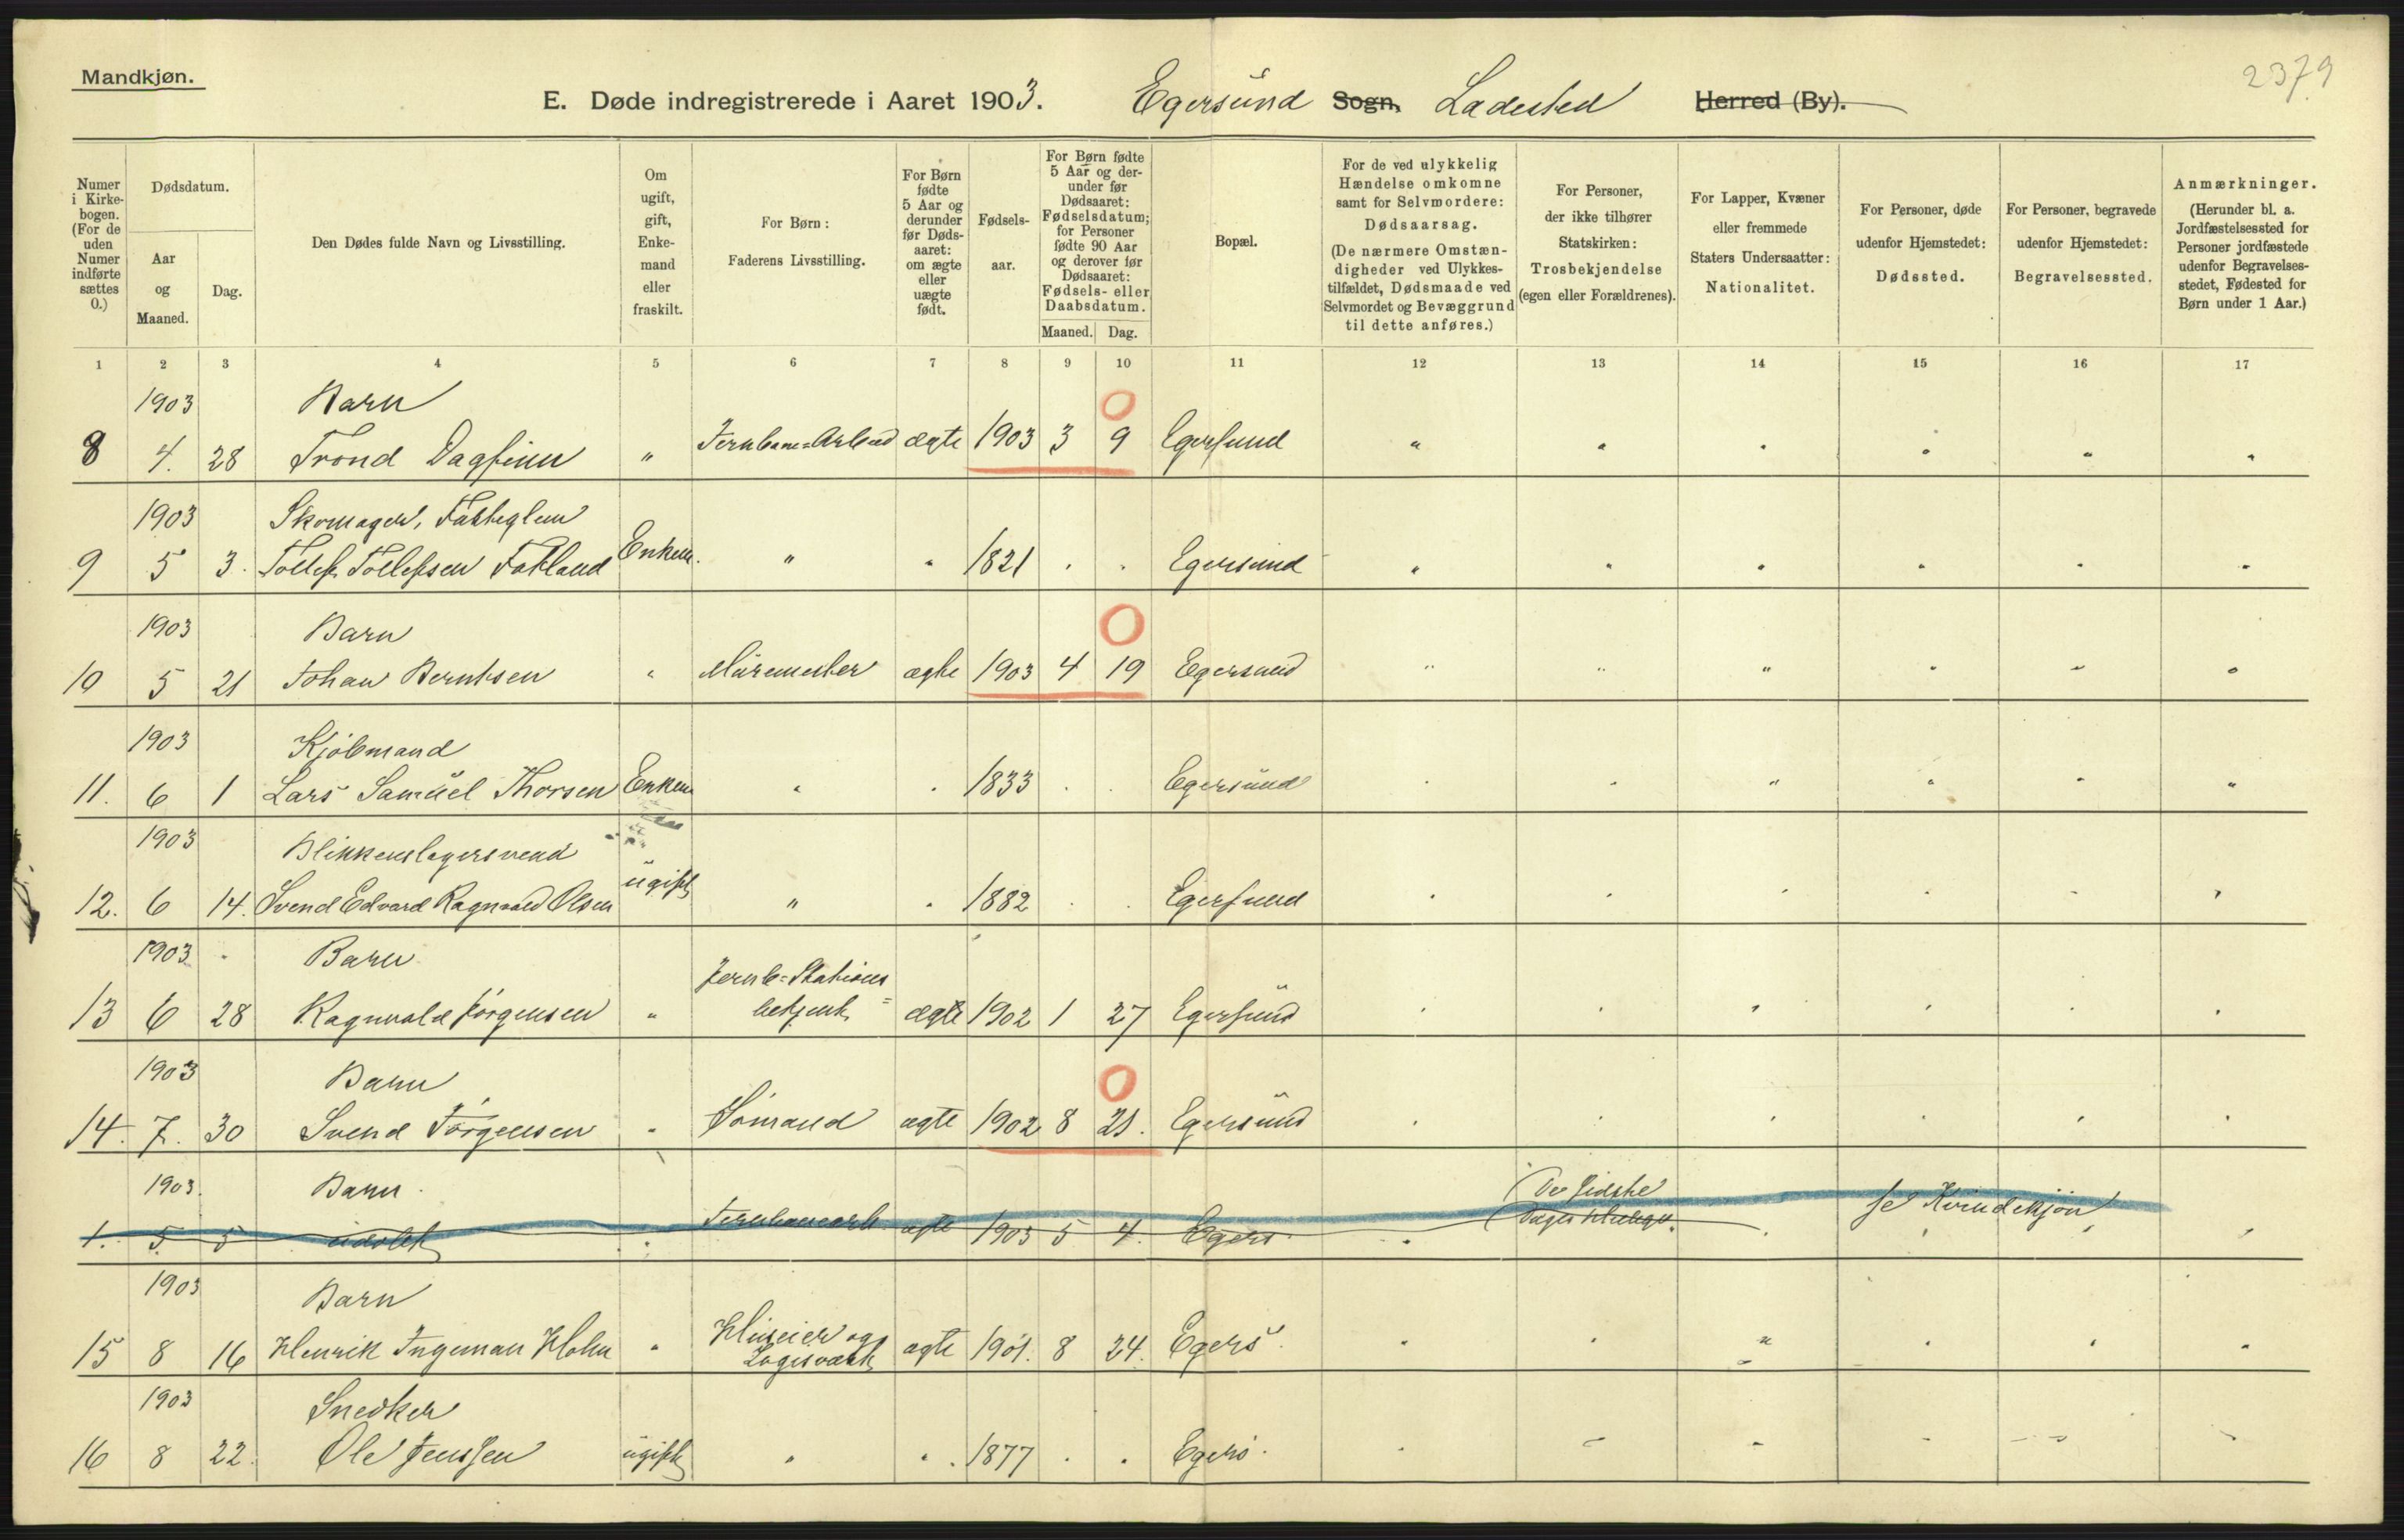 Mandkjøn.
2379
E. Døde indregistrerede i Aaret 1903. Egersund Sogn, Ladested Herred (By).
Numer i Kirkebogen. (For de uden Numer indførte sættes 0.)
Dødsdatum.
Aar og Maaned.
Dag.
Den Dødes fulde Navn og Livsstilling.
Om ugift, gift, Enkemand eller fraskilt.
For Børn: Faderens Livsstilling.
For Børn fødte 5 Aar og derunder før Dødsaaret: om ægte eller uægte født.
Fødselsaar.
For Børn fødte 5 Aar og derunder før Dødsaaret: Fødselsdatum; for Personer fødte 90 Aar og derover før Dødsaaret: Fødsels- eller Daabsdatum.
Maaned. Dag.
Bopæl.
For de ved ulykkelig Hændelse omkomne samt for Selvmordere: Dødsaarsag. (De nærmere Omstændigheder ved Ulykkestilfældet, Dødsmaade ved Selvmordet og Bevæggrund til dette anføres.)
For Personer, der ikke tilhører Statskirken: Trosbekjendelse (egen eller Forældrenes).
For Lapper, Kvæner eller fremmede Staters Undersaatter: Nationalitet.
For Personer, døde udenfor Hjemstedet: Dødssted.
For Personer, begravede udenfor Hjemstedet: Begravelsessted.
Anmærkninger. (Herunder bl. a. Jordfæstelsessted for Personer jordfæstede udenfor Begravelsesstedet, Fødested for Børn under 1 Aar.)
1 2 3 4 5 6 7 8 9 10 11 12 13 14 15 16 17
1903 Barn 0
8 4. 28 Trond Dagfinn " Jernbane=Arbeid ægte 1903 3 9 Egersund " " " " " "
1903 Skomager,
9 5 3. Tollef Tollefsen Enkem. " " 1821 Egersund " " " " " "
1903 Barn 0
10 5 21 Johan Berntsen " Muremester ægte 1903 4 19 Egersund " " " " " "
1903 Kjøbmand
11. 6 1 Lars Samuel Thorsen Enkem " " 1833 Egersund " " " " " "
1903 Blikkenslagersvend
12. 6 14. Svend Edvard Ragnvald Olsen ugift " " 1882 Egersund " " " " " "
1903 Barn Jernb=Stations=
13 6 28 Ragnvald Jørgensen " betjent ægte 1902 1 27 Egersund " " " " " "
1903 Barn 0
14. 7. 30 Svend Jørgensen " Sømand ægte 1902 8 21. Egersund " " " " " "
1903. Barn. De sidste
1. 5 5 udøbt " Jernbanearb. ægte 1903 5 4. Egers. " Dages Hellige. " se Kvindekjøn "
1903 Barn Huseier og
15 8 16 Henrik Ingeman Holm " Logisvært ægte 1901. 8 24. Egers. " " " " " "
1903 Snedker
16 8 22. Ole Jenssen ugift " " 1877 Egers. " " " " " "